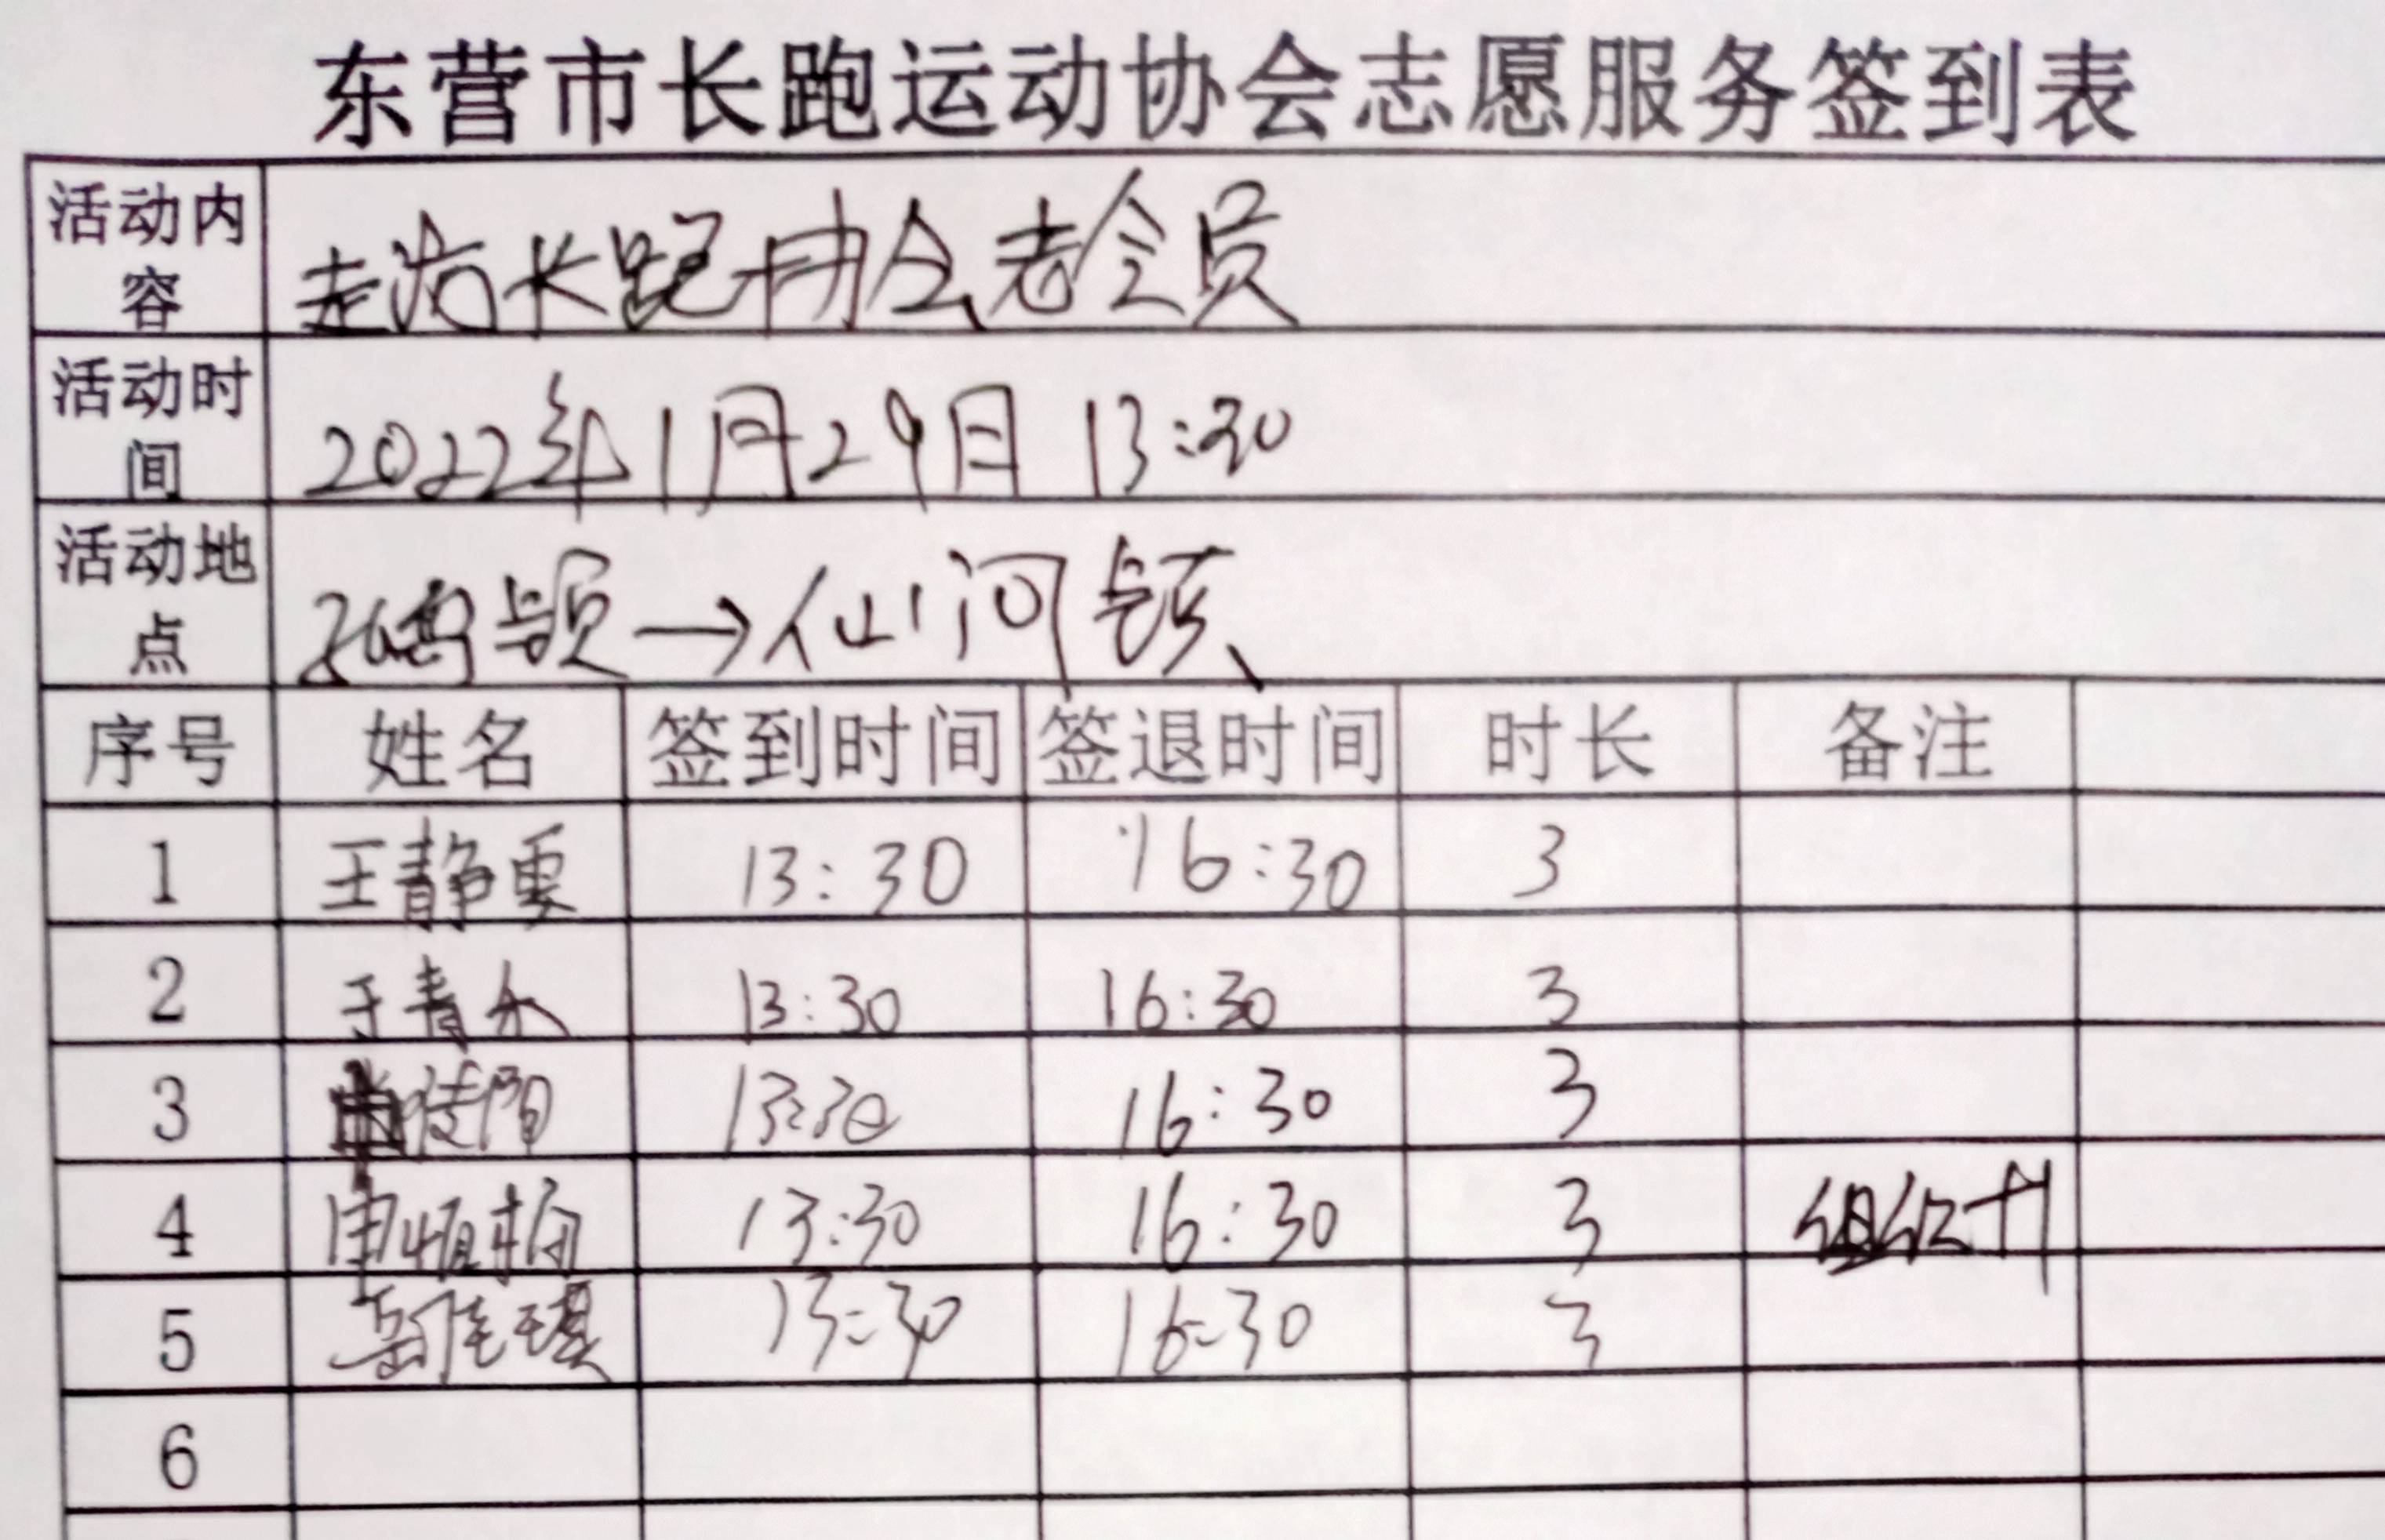 东营市长跑运动协会志愿服务签到表
活动内容 走访长跑协会老会员
活动时间 2022年1月29日 13:30
活动地点 →仙河镇
序号 姓名 签到时间 签退时间 时长 备注
1 王静 13:30 16:30 3
2 于青水 13:30 16:30 3
3 13:30 16:30 3
4 13:30 16:30 3
5 13:30 16:30 3
6